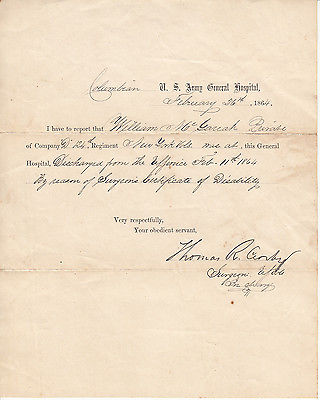 Columbian U. S. Army General Hospital,
February 26th, 1864.
I have to report that William Mc Private
of Company 24th Regiment New York was at, this General
Hospital, Discharged from the Service Feb. 11th 1864
By reason of Surgeons Certificate of Disability
Very respectfully,
Your obedient servant,
Thomas R. Crosby
Surgeon
In charge